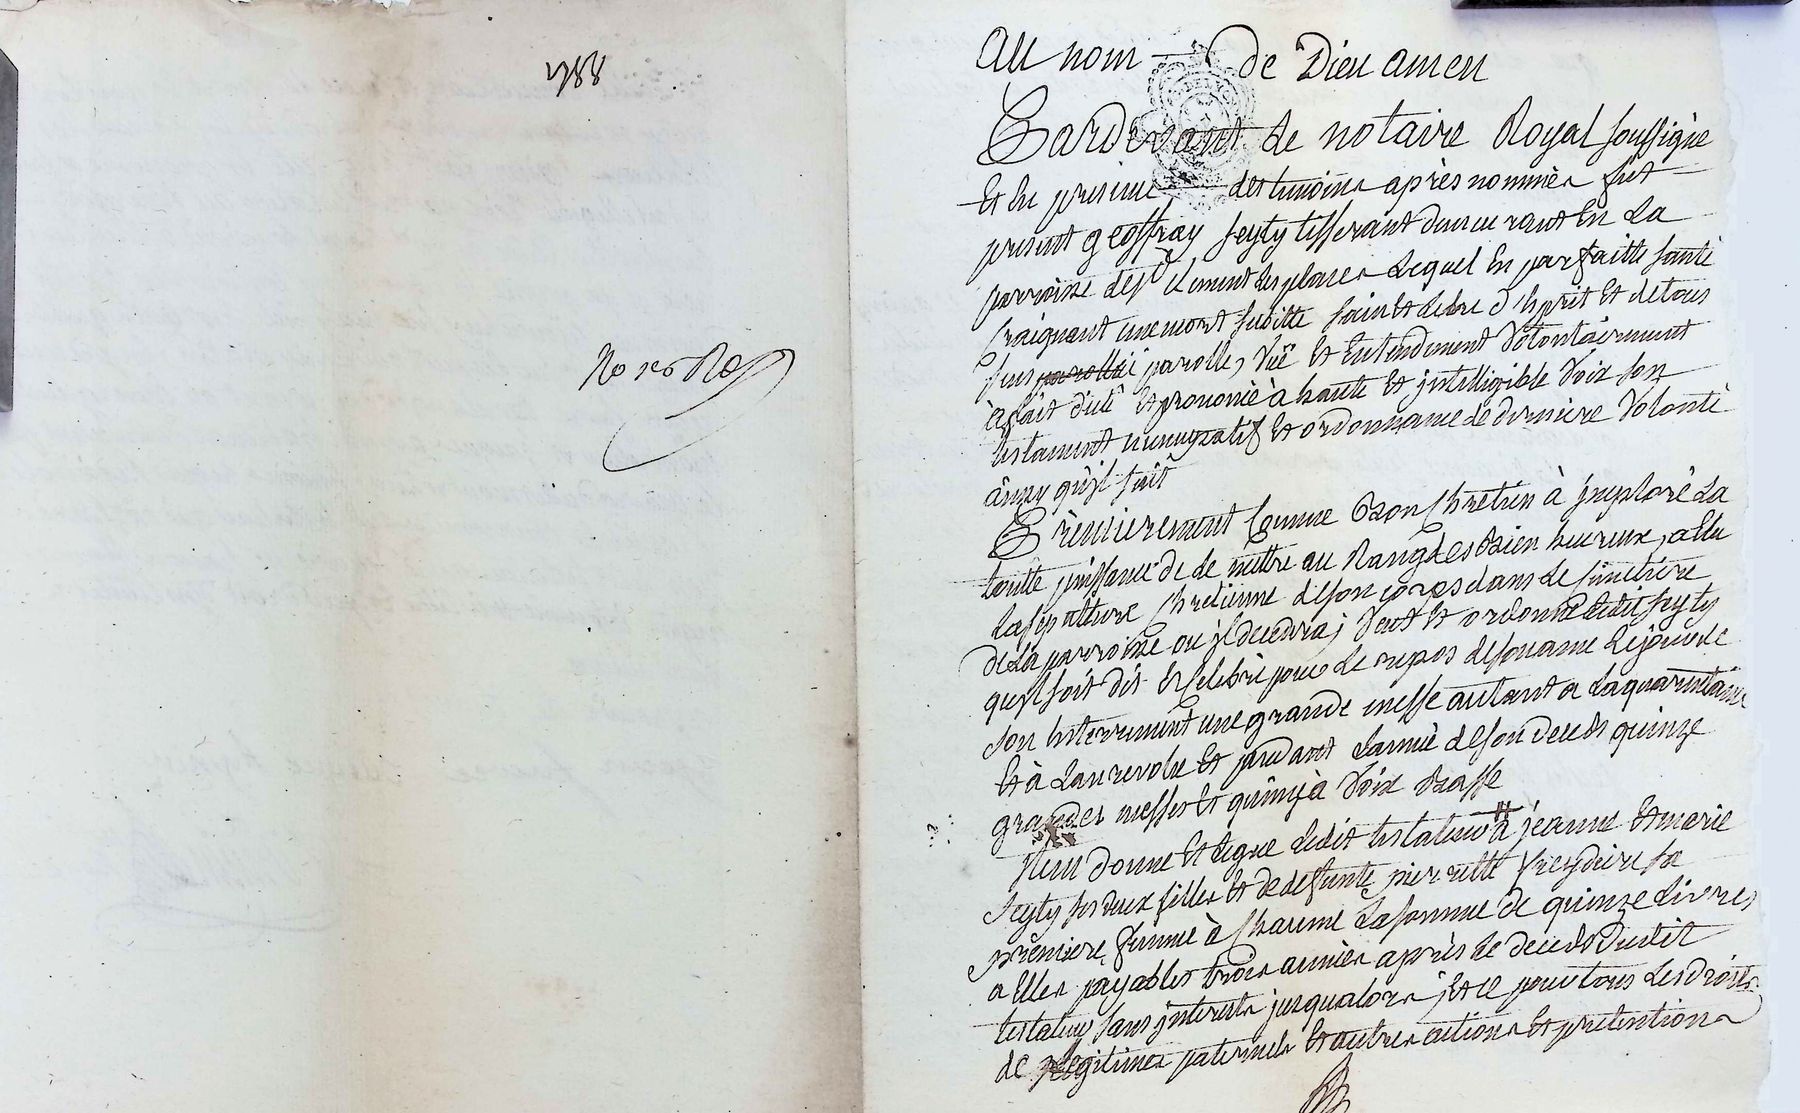 1788
au nom de Dieu amen
Pardevant le notaire Royal soussigné
Et En presence des temoins après nommés fut
present geoffray seyty tisserant demeurant En La
parroisse de st Clement les places Lequel En parfaitte santé
Craignant une mort subitte sain Et Libre d'Esprit Et de tous
sens parolle, vüe Et Entendement volontairement
à fait dicté Et prononcé à haute Et jntelligible voix son
testament nuncupatif Et ordonnance de derniere volonté
ainsy qu'jl suit
Premierement Comme Bon Chretien à jmploré La
toutte puissance de le mettre au Rang des Bien heureux, a Elu
La sepulture Chretienne de son corps dans Le simetiere
de La parroisse ou jl decedra; veut Et ordonne Ledit seyty
qu'jl soit dit Et Celebré pour Le repos de son ame Le jour de
son Enterrement une grande messe autant a La quarantaine
Et à Lanrevolu Et pendant L'année de son decès quinze
grandes messes Et quinze à voix Basse
jtem donne Et Legue Ledit testateur à jeanne Et marie
seyty ses deux filles Et de defunte pierrette freydiere sa
premiere femme à Chacune La somme de quinze Livres
a Elles payables trois années après Le decès dudit
testateur sans jnterests jusqualors; Et ce pour tous Les droits
de Legitimes paternels Et autres actions Et pretentions